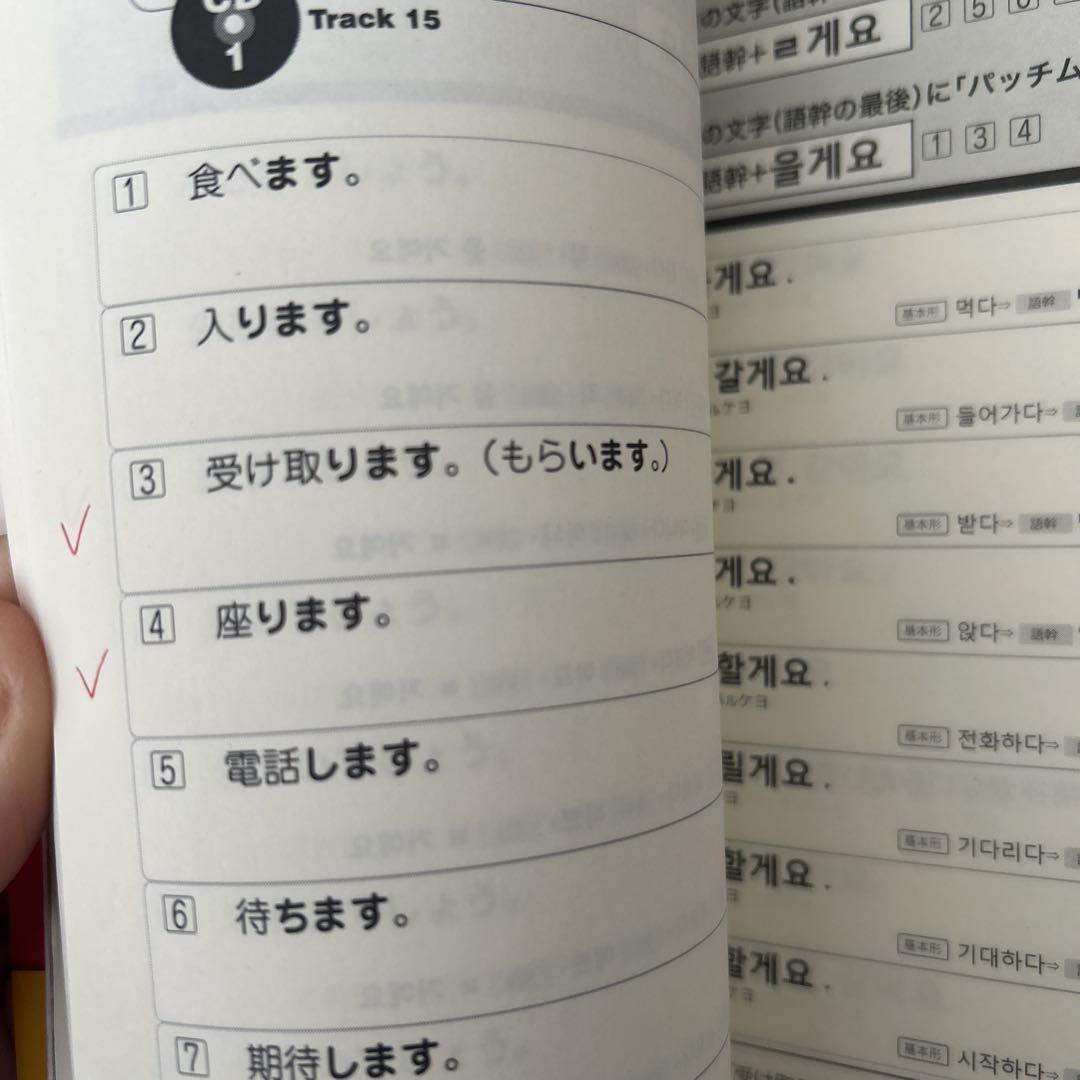 CD
1
Track 15
1 食べます。
2 入ります。
3 受け取ります。(もらいます。)
4 座ります。
5 電話します。
6 待ちます。
7 期待します。
の文字(語幹
2 5
語幹+ㄹ게요
の文字(語幹の最後)に「パッチム
語幹+을게요
1 3 4
게요.
基本形 먹다⇒ 語幹
갈게요.
ルケヨ
基本形 들어가다⇒
게요.
基本形 받다⇒ 語幹
게요.
ケヨ
基本形 앉다⇒ 語幹
할게요.
ハルケヨ
基本形 전화하다⇒
릴게요.
基本形 기다리다⇒
할게요.
基本形 기대하다⇒
할게요.
ルケヨ
基本形 시작하다⇒